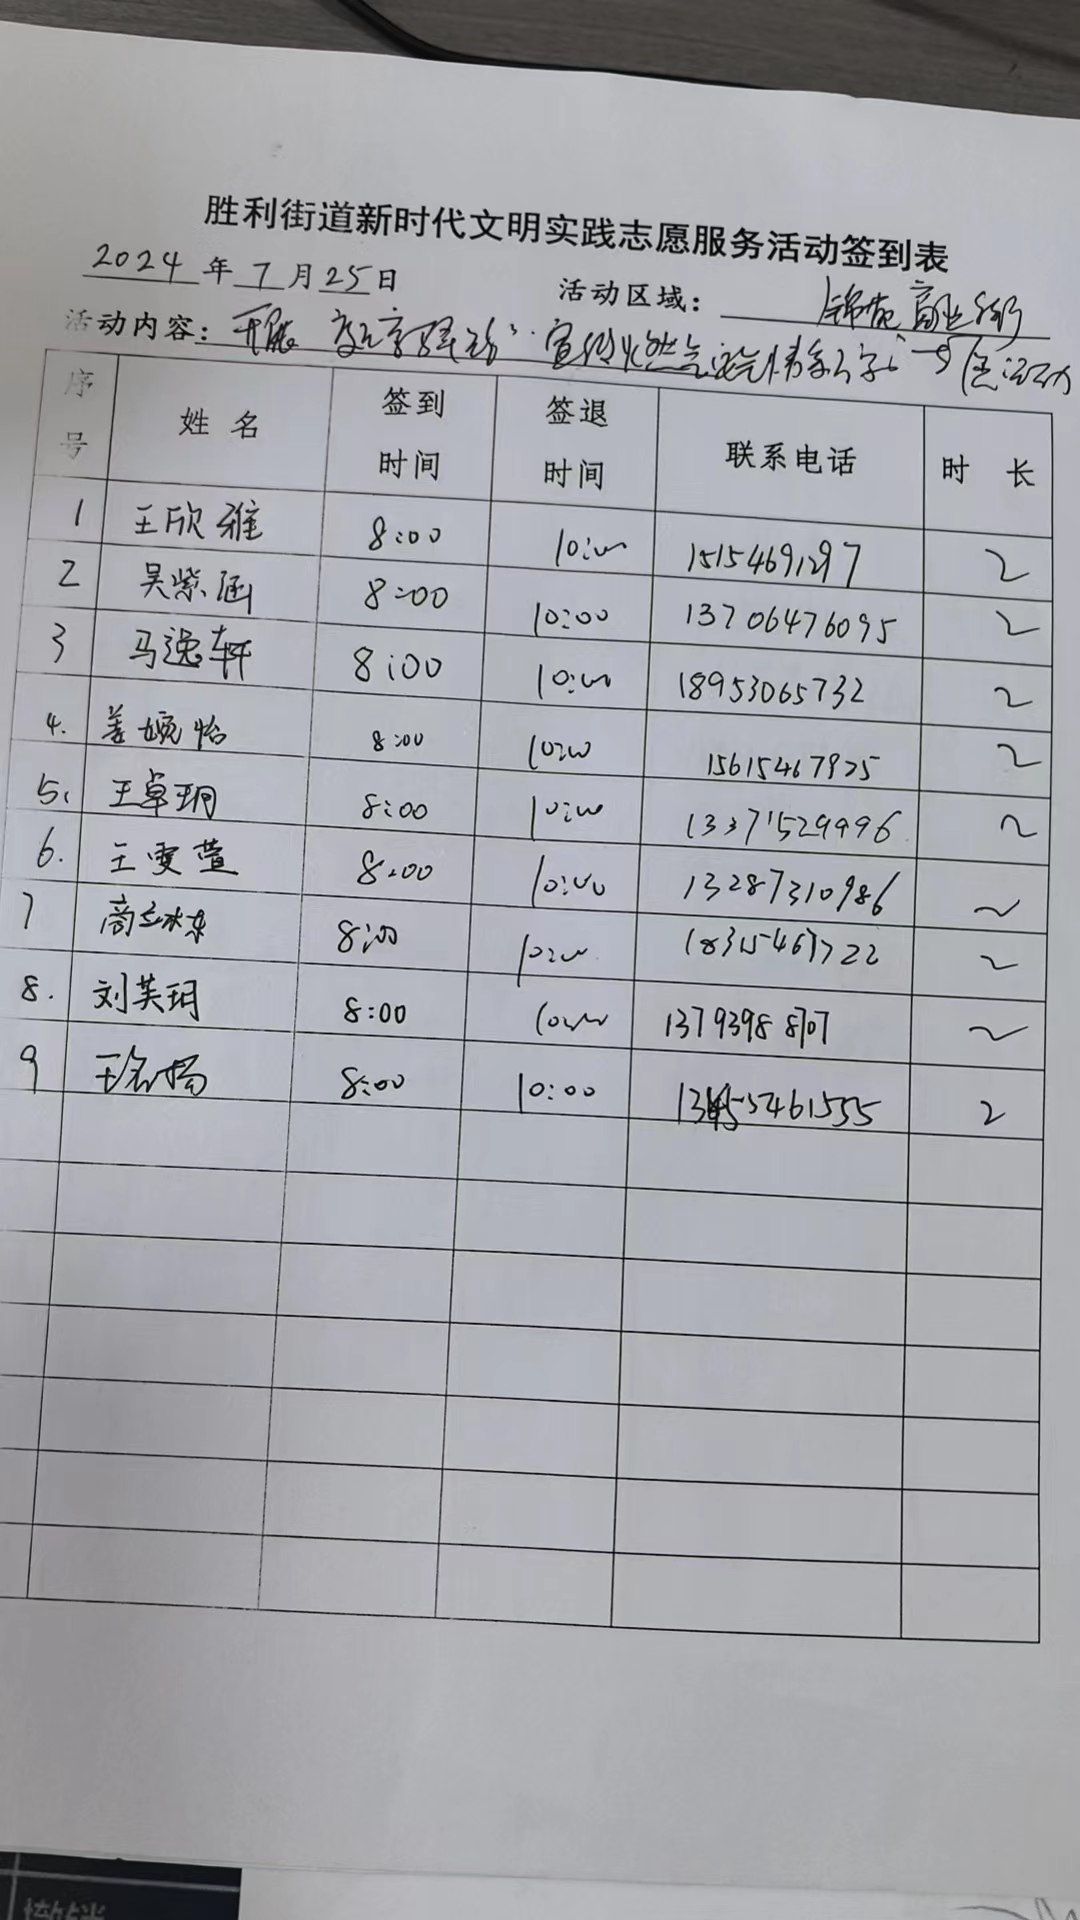 胜利街道新时代文明实践志愿服务活动签到表
2024年7月25日 活动区域：锦苑商业街
活动内容：开展 宣传燃气安全 活动
序号 姓名 签到时间 签退时间 联系电话 时长
1 王欣雅 8:00 10:00 15154691297 2
2 吴紫涵 8:00 10:00 13706476095 2
3 马逸轩 8:00 10:00 18953065732 2
4. 姜婉怡 8:00 10:00 15615467925 2
5. 王卓玥 8:00 10:00 13371529996 2
6. 王雯萱 8:00 10:00 13287310986 2
7 商 8:00 10:00 18315467722 2
8. 刘芙玥 8:00 10:00 13793988707 2
9 王名扬 8:00 10:00 2
撤销